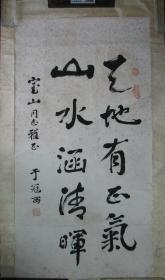 天地有正氣
山水涵清暉
宝山同志雅正
于冠西